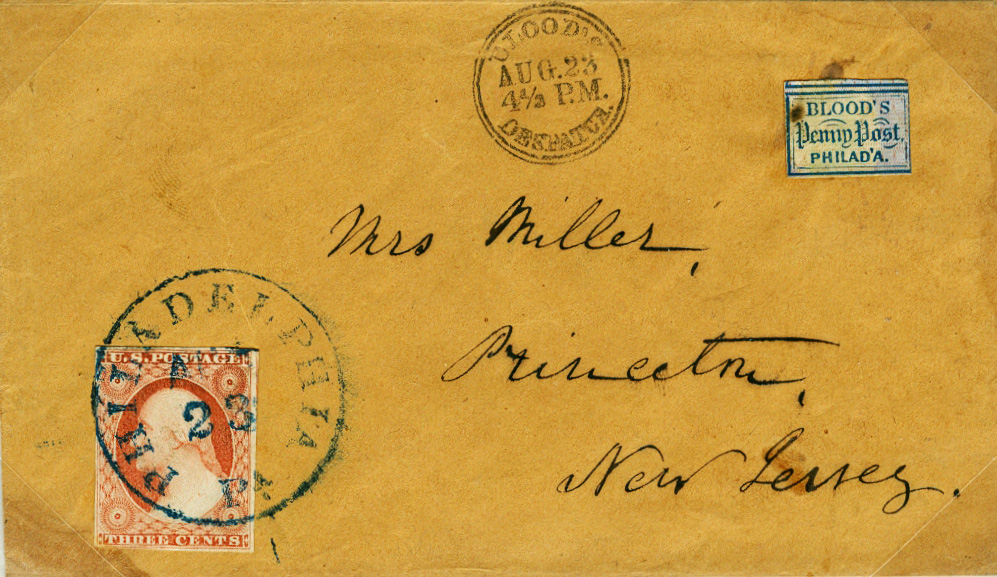 BLOOD'S
AUG. 23
4½ P.M.
DESPATCH.
BLOOD'S
Penny Post,
PHILAD'A.
Mrs Miller,
Princeton,
New Jersey.
PHILADELPHIA
AUG
23
U.S. POSTAGE
THREE CENTS